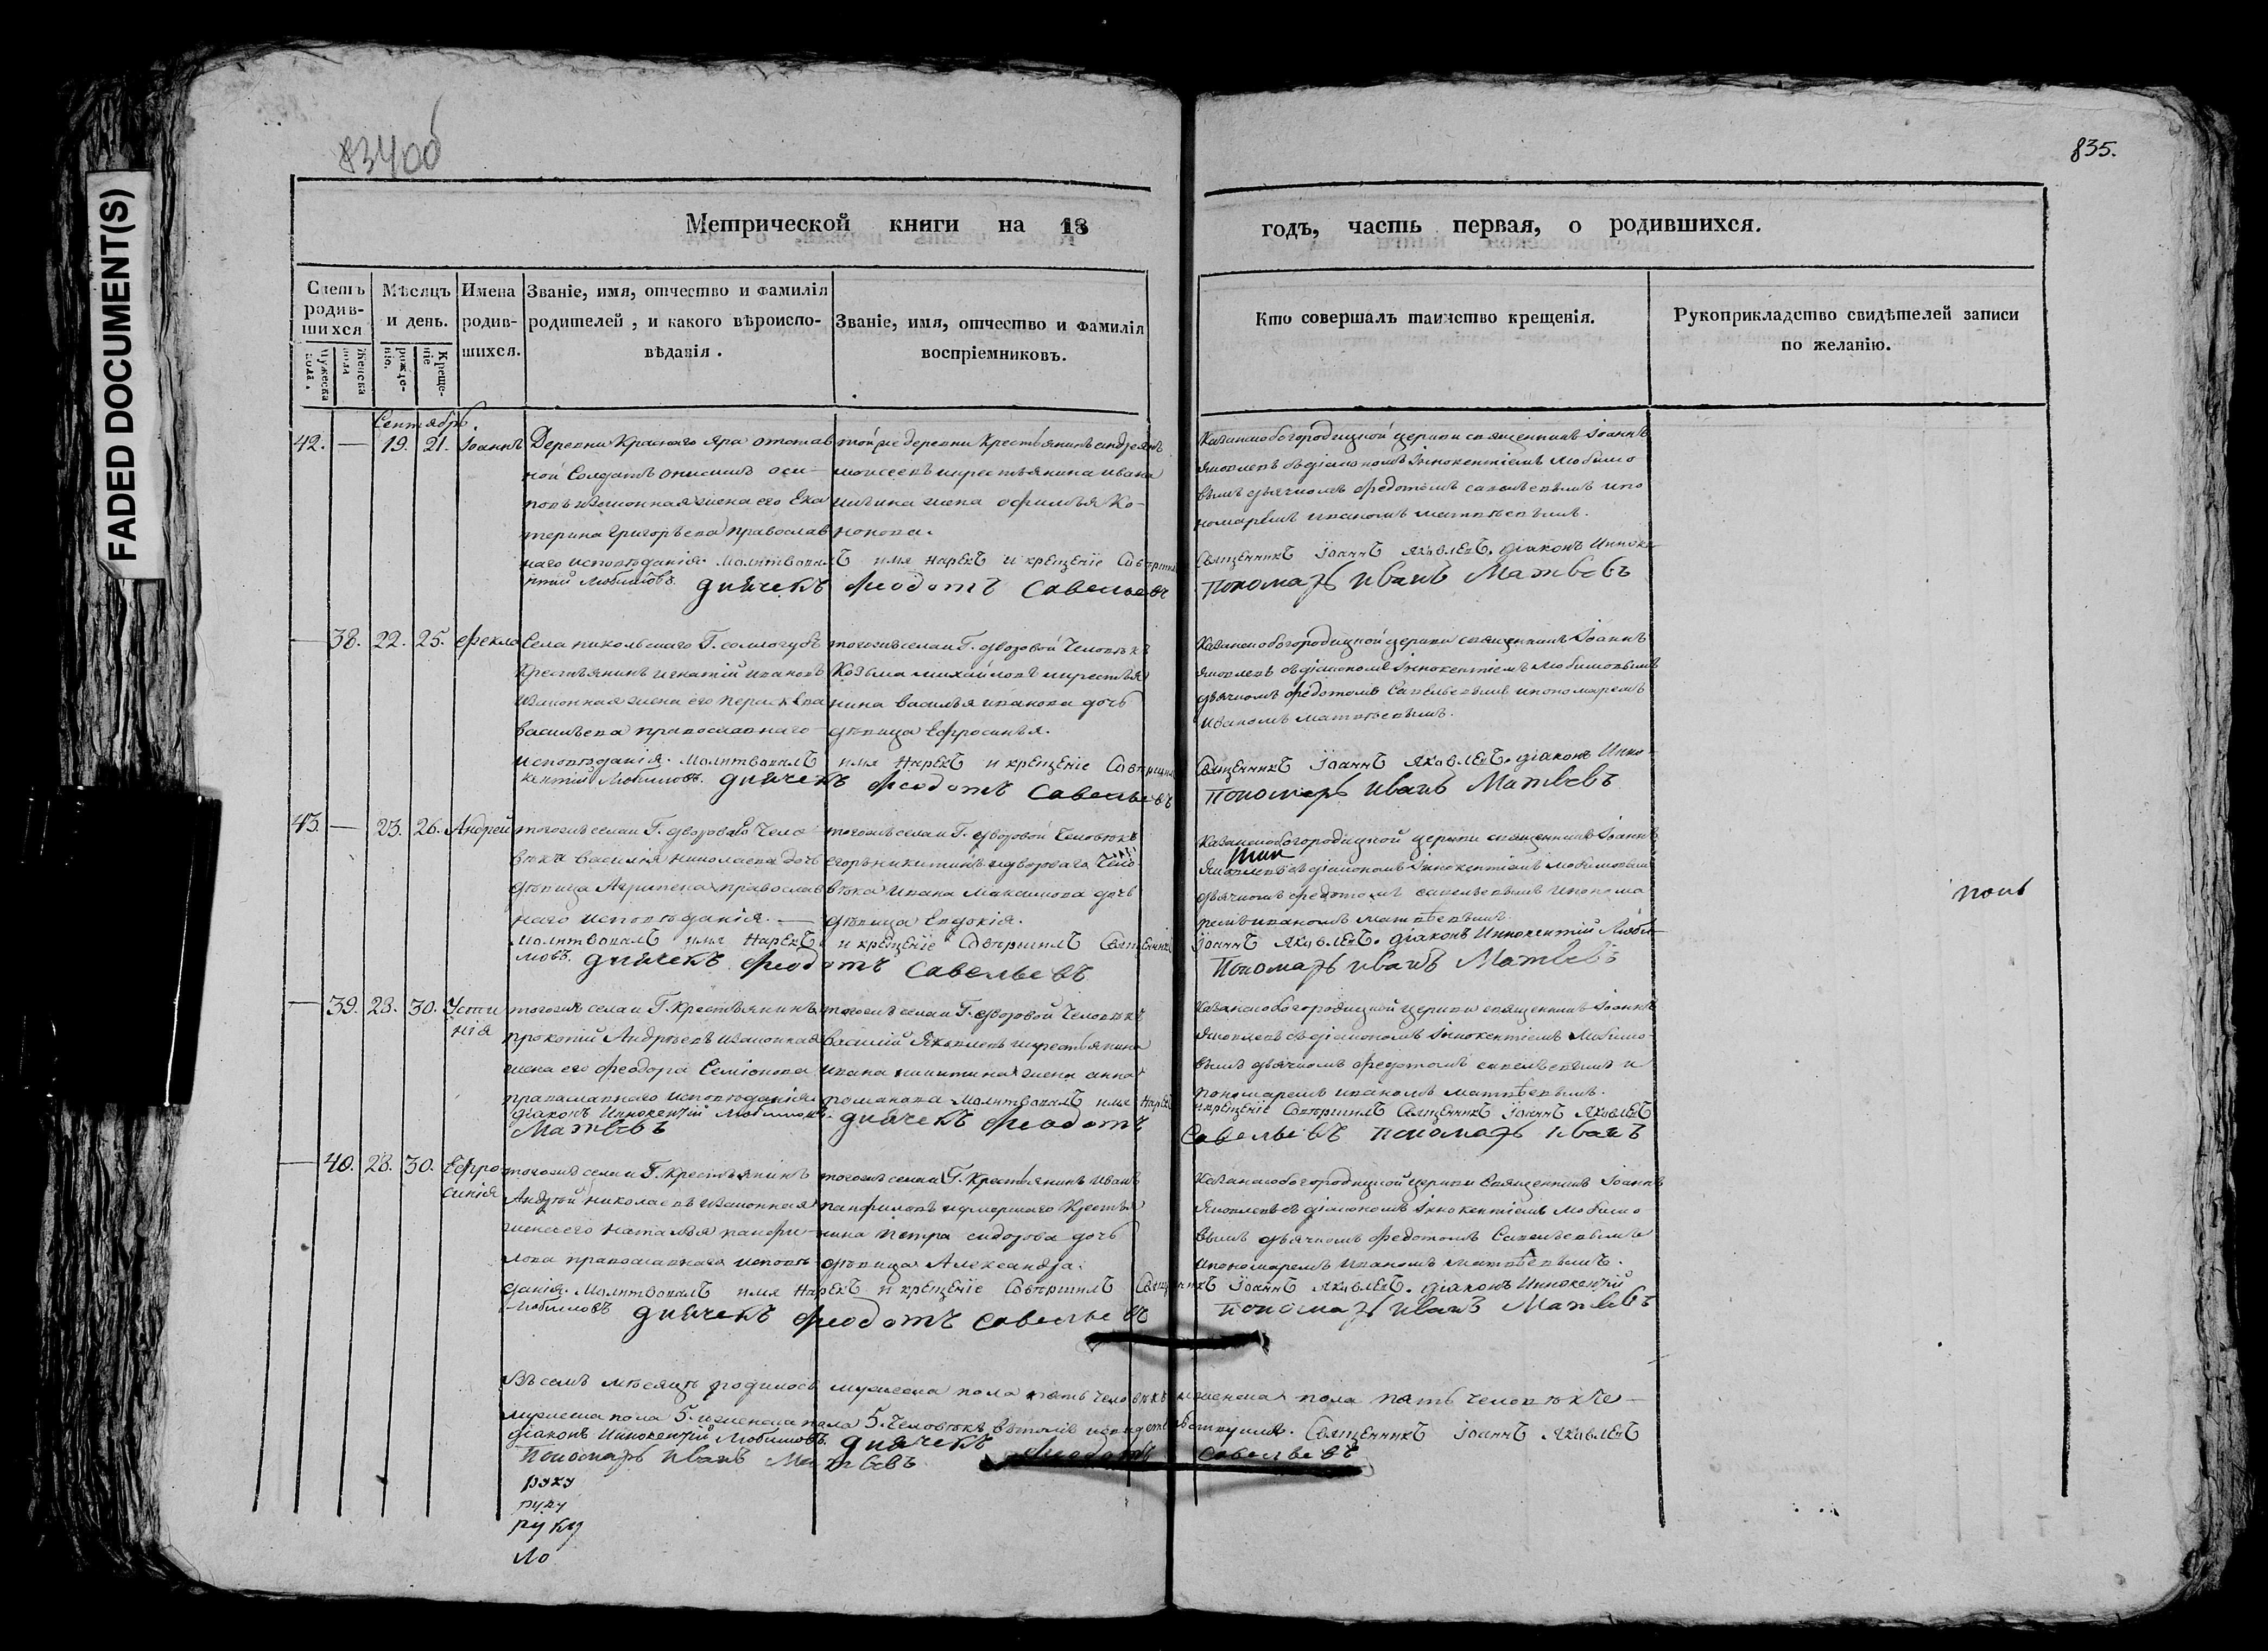 FADED DOCUMENT(S)
834об
835.
Метрической книги на 18
годъ, часть первая, о родившихся.
Счетъ родив-шихся
Мужеска пола.
Женска пола
Мѣсяцъ и день.
рожде-нію.
Креще-ніе
Имена родив-шихся.
Званіе, имя, отчество и фамилія родителей, и какого вѣроиспо-вѣданія.
Званіе, имя, отчество и фамилія воспріемниковъ.
Кто совершалъ таинство крещенія.
Рукоприкладство свидѣтелей записи по желанію.
Сентябрь
42. — 19. 21. Іоаннъ
Деревни Краснаго яра отстав
ной Солдатъ Оси-
повъ изаконная жена его Ека
терина Григорьева православ
наго исповѣданія. Молитвовалъ имя нарекъ и крещеніе Совершилъ
нтій Любимовъ. дьячекъ Феодотъ Савельевъ
тойже деревни Крестьянинъ андреянъ
моисеевъ икрестьянина ивана
жена офимья Ко-
нонова.
Казанскобогородицкой церкви священникъ Іоаннъ
Яковлевъ съдіакономъ Іннокентіемъ Любимо
вымъ дьячкомъ Федотомъ савельевымъ ипо
номаремъ иваномъ матвѣевымъ.
Священникъ Іоаннъ Яковлевъ. діаконъ Инноке-
Пономарь Иванъ Матвѣевъ
— 38. 22. 25. Фекла
Села никольскаго Г. сологубъ
Крестьянинъ игнатій ивановъ
изаконная жена его параскева
васильева православнаго
исповѣданія. Молитвовалъ имя нарекъ и крещеніе Совершилъ
кентій Любимовъ. дьячекъ Феодотъ Савельевъ
тогожъ села и Г. дворовой Человѣкъ
Козьма михайловъ икрестья
нина василья иванова дочь
дѣвица Ефросинья.
Казанскобогородицкой церкви священникъ Іоаннъ
Яковлевъ съдіакономъ Іннокентіемъ Любимовымъ
дьячкомъ Федотомъ Савельевымъ ипономаремъ
иваномъ матвѣевымъ.
Священникъ Іоаннъ Яковлевъ. діаконъ Инно-
Пономарь Иванъ Матвѣевъ
43. — 23. 26. Андрей
тогожъ села и Г. двороваго Чело
вѣка василія николаева дочь
дѣвица Агрипена православ
наго исповѣданія. —
Молитвовалъ имя нарекъ и крещеніе Совершилъ Священникъ
мовъ. дьячекъ Феодотъ Савельевъ
тогожъ села и Г. дворовой Человѣкъ
егоръ никитинъ идвороваго Чело
вѣка Ивана Максимова дочь
дѣвица Евдокія.
Казанскобогородицкой церкви священникъ Іоаннъ
Яковлевъ съдіакономъ Іннокентіемъ Любимовымъ
дьячкомъ Федотомъ савельевымъ ипонома
ремъ иваномъ матвѣевымъ.
Іоаннъ Яковлевъ. діаконъ Иннокентій Люби-
Пономарь Иванъ Матвѣевъ
— 39. 28. 30. Усти
нія
тогожъ села и Г. Крестьянинъ
прокопій Андреевъ изаконная
жена его Феодора Семіонова
православнаго исповѣданія
діаконъ Иннокентій Любимовъ.
Матвѣевъ
тогожъ села и Г. дворовой Человѣкъ
василій Яковлевъ икрестьянина
ивана никитина жена анна
романова Молитвовалъ имя нарекъ
дьячекъ Феодотъ
Казанскобогородицкой церкви священникъ Іоаннъ
Яковлевъ съдіакономъ Іннокентіемъ Любимо-
вымъ дьячкомъ Федотомъ савельевымъ и
пономаремъ иваномъ матвѣевымъ.
икрещеніе Совершилъ Священникъ Іоаннъ Яковлевъ
Савельевъ Пономарь Иванъ
— 40. 28. 30. Ефро
синія
тогожъ села и Г. Крестьянинъ
Андрей николаевъ изаконная
жена его наталья панфи-
лова православнаго исповѣ-
данія. Молитвовалъ имя Нарекъ и крещеніе Совершилъ Священникъ Іоаннъ Яковлевъ. діаконъ Иннокентій
Любимовъ дьячекъ Феодотъ Савельевъ
Пономарь Иванъ Матвѣевъ
тогожъ села и Г. Крестьянинъ Иванъ
панфиловъ иумершаго Крестья
нина петра сидорова дочь
дѣвица Александра.
Казанскобогородицкой церкви Священникъ Іоаннъ
Яковлевъ съдіакономъ Іннокентіемъ Любимо
вымъ дьячкомъ Федотомъ Савельевымъ
ипономаремъ иваномъ матвѣевымъ.
Въ семъ мѣсяцѣ родилось мужеска пола пять Человѣкъ иженска пола пять Человѣкъ
мужеска пола 5. иженска пола 5. Человѣкъ Священникъ Іоаннъ Яковлевъ
діаконъ Иннокентій Любимовъ. дьячекъ Феодотъ Савельевъ
Пономарь Иванъ Матвѣевъ
руку
руку
руку
Ло